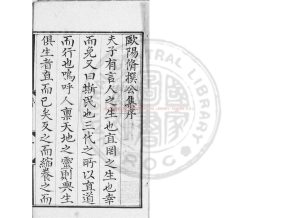 歐陽脩撰公集序
夫子有言人之生也直罔之生也幸
而免又曰斯民也三代之所以直道
而行也嗚呼人禀天地之靈則與生
俱生者直而已矣反之而縮養之而